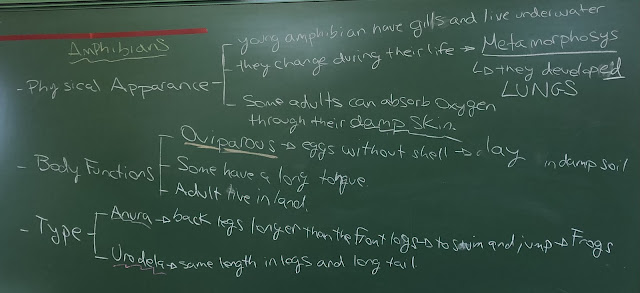 Amphibians
young amphibian have gills and live underwater
- Physical Apparance - they change during their life → Metamorphosys
↳ they developed LUNGS
Some adults can absorb oxygen
through their damp skin.
- Body Functions - Oviparous → eggs without shell → lay in damp soil
- Some have a long tongue.
- Adult live in land.
- Type - Anura → back legs longer than the front legs → to swim and jump → Frogs
Urodela → same length in legs and long tail.